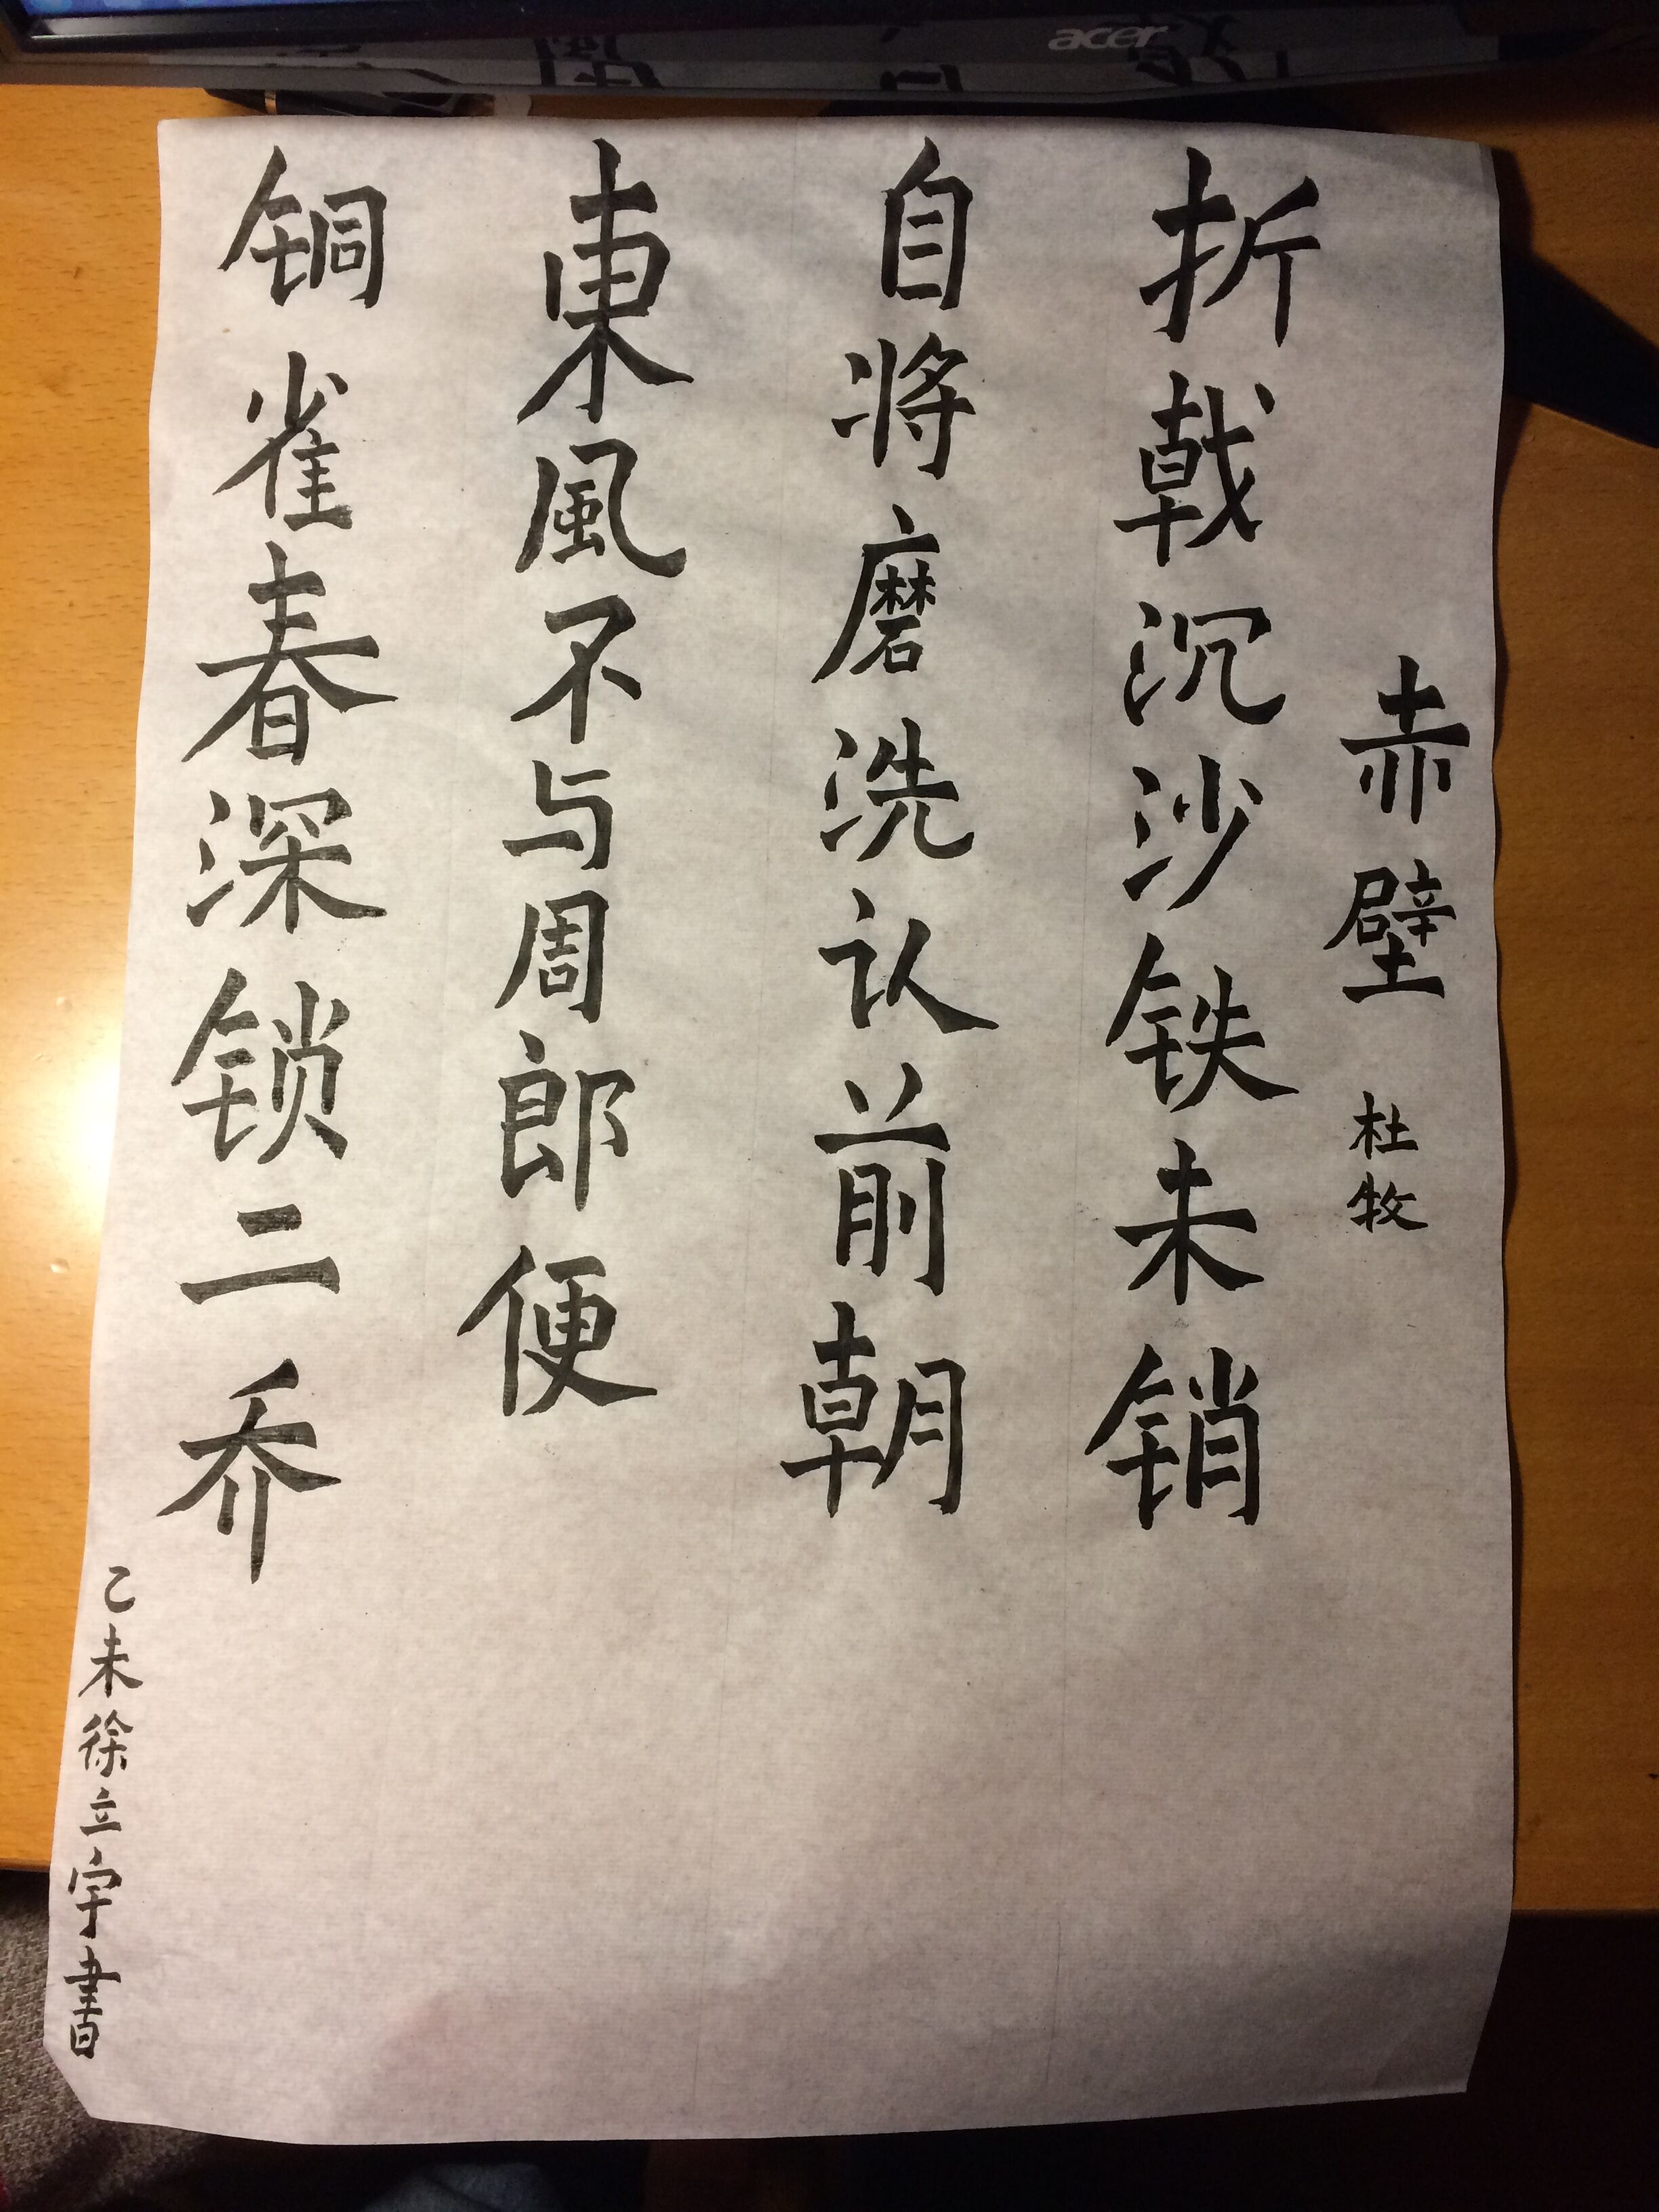 赤壁 杜牧
折戟沉沙铁未销
自将磨洗认前朝
東風不与周郎便
铜雀春深锁二乔
乙未徐立宇書
acer